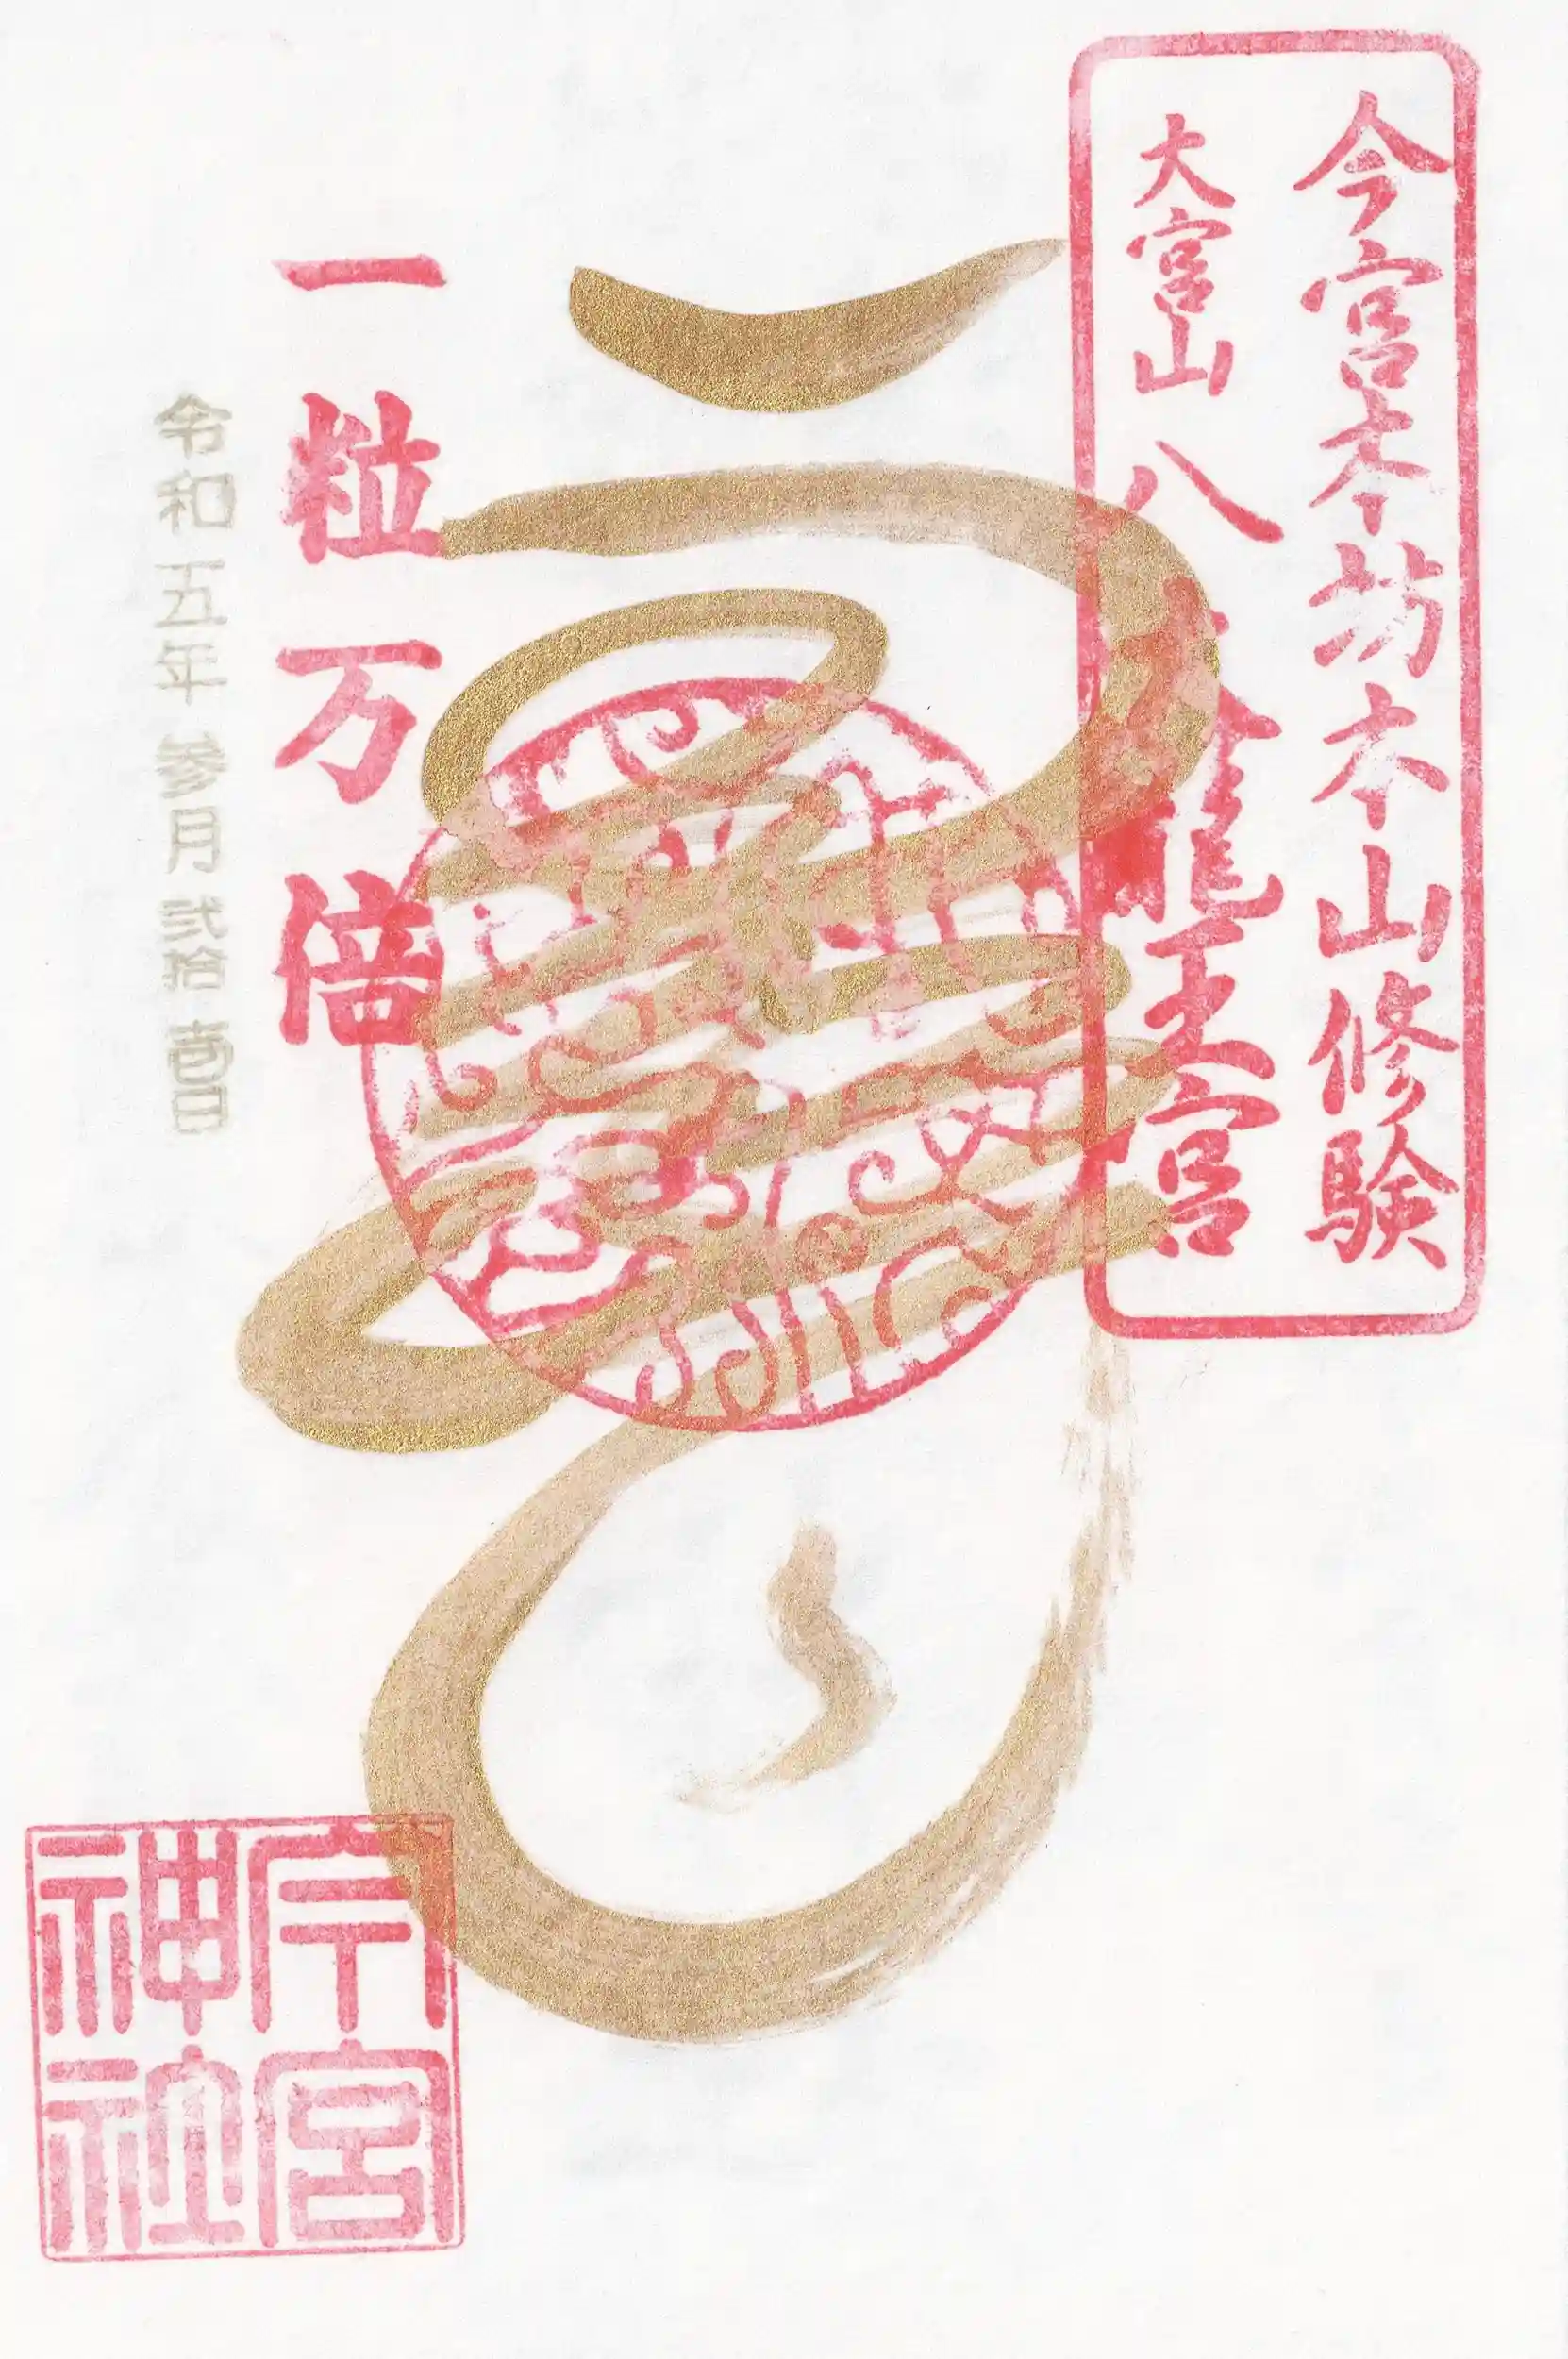 今宮本坊本山修験
大宮山 八大龍王宮
一粒万倍
令和五年参月弐拾壱日
今宮
神社